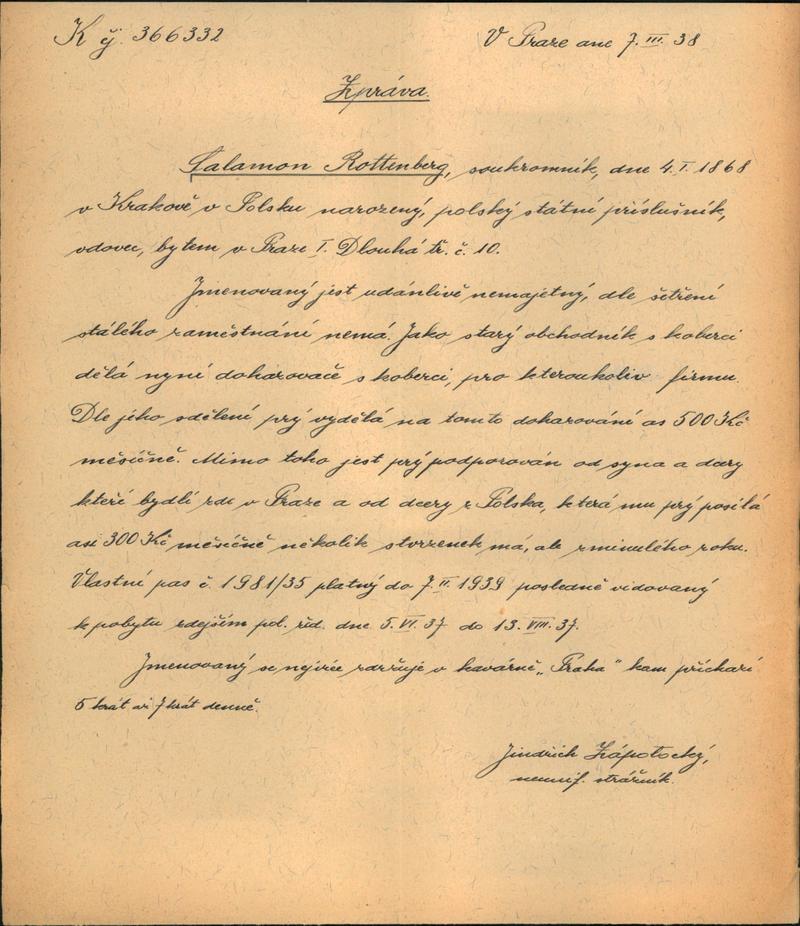 K čj. 366332
V Praze dne 7.III.38
Zpráva.
Salamon Rottenberg, soukromník, dne 4.I.1868
v Krakově v Polsku narozený, polský státní příslušník,
vdovec, bytem v Praze I. Dlouhá tř. č. 10.
Jmenovaný jest udánlivě nemajetný, dle šetření
stálého zaměstnání nemá. Jako starý obchodník s koberci
dělá nyní doharovače s koberci, pro kteroukoliv firmu.
Dle jeho sdělení prý vydělá na tomto doharování as 500 Kč
měsíčně. Mimo toho jest prý podporován od syna a dcery
kteří bydlí zde v Praze a od dcery z Polska, která mu prý posílá
asi 300 Kč měsíčně několik stvrzenek má, ale z minulého roku.
Vlastní pas č. 1981/35 platný do 7.II.1939 posledně vidovaný
k pobytu zdejším pol. řed. dne 5.VI.37 do 13.VIII.37.
Jmenovaný se nejvíce zdržuje v kavárně „Praha" kam přichází
5 krát až 7 krát denně.
Jindrich Zápotocký,
neunif. strážník.